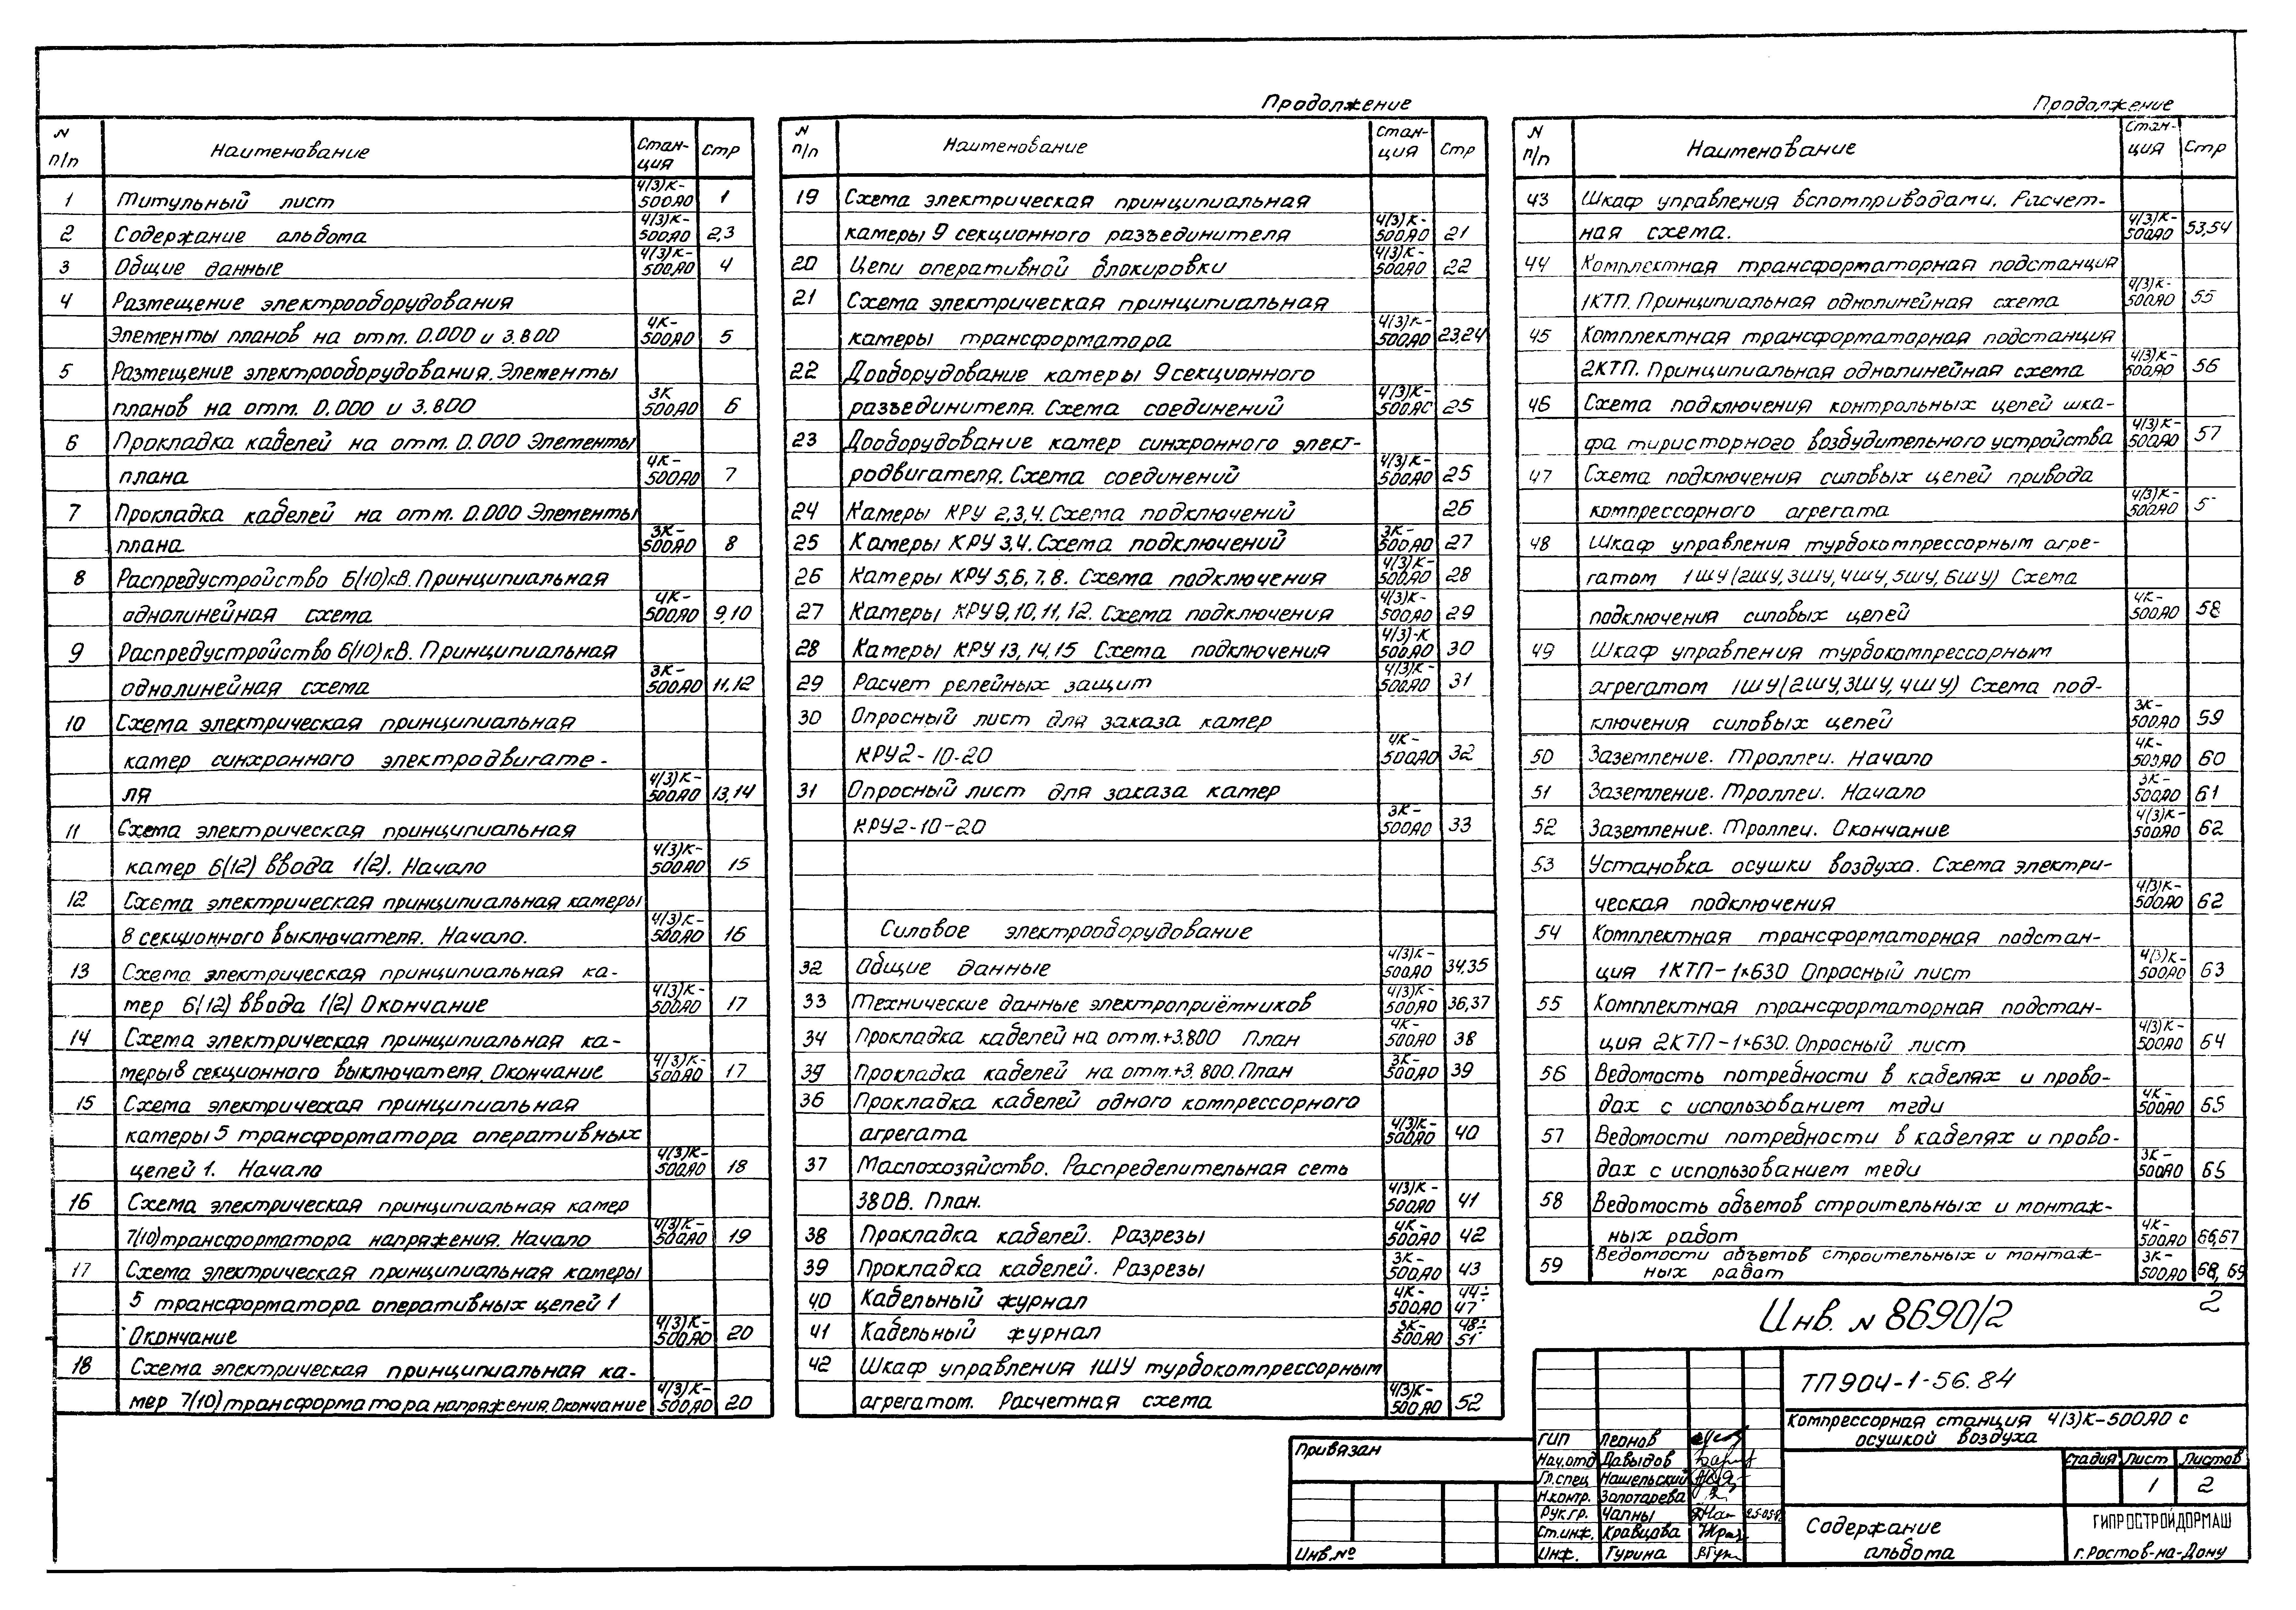 Продолжение
Продолжение
N п/п Наименование Стан-ция Стр
1 Титульный лист 4(3)К-500А0 1
2 Содержание альбома 4(3)К-500А0 2,3
3 Общие данные 4(3)К-500А0 4
4 Размещение электрооборудования
Элементы планов на отм. 0.000 и 3.800 4К-500А0 5
5 Размещение электрооборудования. Элементы
планов на отм. 0.000 и 3.800 3К 500А0 6
6 Прокладка кабелей на отм. 0.000 Элементы
плана 4К-500А0 7
7 Прокладка кабелей на отм. 0.000 Элементы
плана 3К-500А0 8
8 Распредустройство 6(10)кВ. Принципиальная
однолинейная схема 4К-500А0 9,10
9 Распредустройство 6(10)кВ. Принципиальная
однолинейная схема 3К-500А0 11,12
10 Схема электрическая принципиальная
камер синхронного электродвигате-
ля 4(3)К-500А0 13,14
11 Схема электрическая принципиальная
камер 6(12) ввода 1(2). Начало 4(3)К-500А0 15
12 Схема электрическая принципиальная камеры
8 секционного выключателя. Начало. 4(3)К-500А0 16
13 Схема электрическая принципиальная ка-
мер 6(12) ввода 1(2) Окончание 4(3)К-500А0 17
14 Схема электрическая принципиальная ка-
меры 8 секционного выключателя. Окончание 4(3)К-500А0 17
15 Схема электрическая принципиальная
камеры 5 трансформатора оперативных
цепей 1. Начало 4(3)К-500А0 18
16 Схема электрическая принципиальная камер
7(10) трансформатора напряжения. Начало 4(3)К-500А0 19
17 Схема электрическая принципиальная камеры
5 трансформатора оперативных цепей 1
Окончание 4(3)К-500А0 20
18 Схема электрическая принципиальная ка-
мер 7(10) трансформатора напряжения. Окончание 4(3)К-500А0 20
N п/п Наименование Стан-ция Стр
19 Схема электрическая принципиальная
камеры 9 секционного разъединителя 4(3)К-500А0 21
20 Цепи оперативной блокировки 4(3)К-500А0 22
21 Схема электрическая принципиальная
камеры трансформатора 4(3)К-500А0 23,24
22 Дооборудование камеры 9 секционного
разъединителя. Схема соединений 4(3)К-500А0 25
23 Дооборудование камер синхронного элект-
родвигателя. Схема соединений 4(3)К-500А0 25
24 Камеры КРУ 2,3,4. Схема подключений 26
25 Камеры КРУ 3,4. Схема подключений 3К-500А0 27
26 Камеры КРУ 5,6,7,8. Схема подключения 4(3)К-500А0 28
27 Камеры КРУ 9,10,11,12. Схема подключения 4(3)К-500А0 29
28 Камеры КРУ 13,14,15 Схема подключения 4(3)-К 500А0 30
29 Расчет релейных защит 4(3)К-500А0 31
30 Опросный лист для заказа камер
КРУ2-10-20 4К-500А0 32
31 Опросный лист для заказа камер
КРУ2-10-20 3К-500А0 33
Силовое электрооборудование
32 Общие данные 4(3)К-500А0 34,35
33 Технические данные электроприёмников 4(3)К-500А0 36,37
34 Прокладка кабелей на отм.+3.800 План 4К-500А0 38
35 Прокладка кабелей на отм.+3.800. План 3К-500А0 39
36 Прокладка кабелей одного компрессорного
агрегата 4(3)К-500А0 40
37 Маслохозяйство. Распределительная сеть
380В. План. 4(3)К-500А0 41
38 Прокладка кабелей. Разрезы 4К-500А0 42
39 Прокладка кабелей. Разрезы 3К-500А0 43
40 Кабельный журнал 4К-500А0 44÷47
41 Кабельный журнал 3К-500А0 48÷51
42 Шкаф управления 1ШУ турбокомпрессорным
агрегатом. Расчетная схема 4(3)К-500А0 52
N п/п Наименование Стан-ция Стр
43 Шкаф управления вспомприводами. Расчет-
ная схема. 4(3)К-500А0 53,54
44 Комплектная трансформаторная подстанция
1КТП. Принципиальная однолинейная схема 4(3)К-500А0 55
45 Комплектная трансформаторная подстанция
2КТП. Принципиальная однолинейная схема 4(3)К-500А0 56
46 Схема подключения контрольных цепей шка-
фа тиристорного возбудительного устройства 4(3)К-500А0 57
47 Схема подключения силовых цепей привода
компрессорного агрегата 4(3)К-500А0 5
48 Шкаф управления турбокомпрессорным агре-
гатом 1ШУ(2ШУ,3ШУ,4ШУ,5ШУ,6ШУ) Схема
подключения силовых цепей 4К-500А0 58
49 Шкаф управления турбокомпрессорным
агрегатом 1ШУ(2ШУ,3ШУ,4ШУ) Схема под-
ключения силовых цепей 3К-500А0 59
50 Заземление. Троллеи. Начало 4К-500А0 60
51 Заземление. Троллеи. Начало 3К-500А0 61
52 Заземление. Троллеи. Окончание 4(3)К-500А0 62
53 Установка осушки воздуха. Схема электри-
ческая подключения 4(3)К-500А0 62
54 Комплектная трансформаторная подстан-
ция 1КТП-1×630 Опросный лист 4(3)К-500А0 63
55 Комплектная трансформаторная подстан-
ция 2КТП-1×630. Опросный лист 4(3)К-500А0 64
56 Ведомость потребности в кабелях и прово-
дах с использованием меди 4К-500А0 65
57 Ведомости потребности в кабелях и прово-
дах с использованием меди 3К-500А0 65
58 Ведомость объемов строительных и монтаж-
ных работ 4К-500А0 66,67
59 Ведомости объемов строительных и монтаж-
ных работ 3К-500А0 68,69
2
Инв. N 8690/2
ТП904-1-56.84
Компрессорная станция 4(3)К-500А0 с
осушкой воздуха
Стадия Лист Листов
1 2
Содержание
альбома
ГИПРОСТРОЙДОРМАШ
г. Ростов-на-Дону
ГИП Леонов
Нач.отд Давыдов
Гл.спец Нашельский
Н.контр. Золотарева
Рук.гр. Чапны
Ст.инж. Кравцова
Инж. Гурина
Привязан
Инв.№